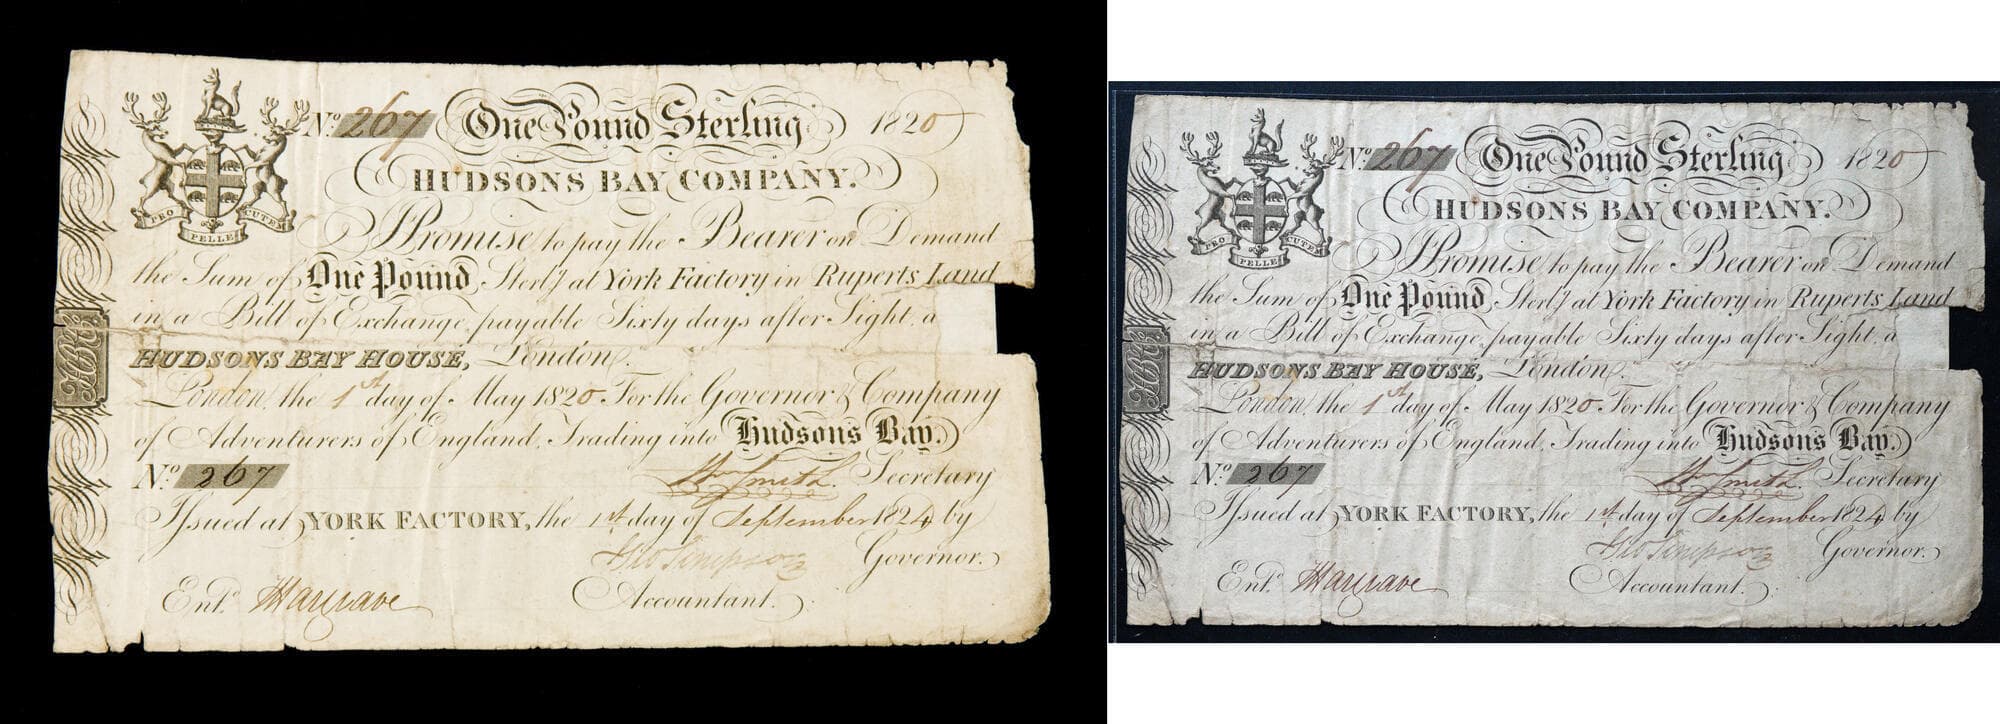 No. 267 One Pound Sterling 1820
HUDSONS BAY COMPANY.
PRO PELLE CUTEM
I Promise to pay the Bearer on Demand
the Sum of One Pound Sterlg. at York Factory in Ruperts Land
in a Bill of Exchange payable Sixty days after Sight, a
HUDSONS BAY HOUSE, London.
HBC
London, the 1st day of May 1820 For the Governor & Company
of Adventurers of England, Trading into Hudsons Bay.
No. 267 Wm Smith. Secretary
Issued at YORK FACTORY, the 1st day of September 1824 by
Geo Simpson Governor.
Entd. JHargrave Accountant.
No. 267 One Pound Sterling 1820
HUDSONS BAY COMPANY.
PRO PELLE CUTEM
I Promise to pay the Bearer on Demand
the Sum of One Pound Sterlg. at York Factory in Ruperts Land
in a Bill of Exchange payable Sixty days after Sight, a
HUDSONS BAY HOUSE, London.
HBC
London, the 1st day of May 1820 For the Governor & Company
of Adventurers of England, Trading into Hudsons Bay.
No. 267 Wm Smith. Secretary
Issued at YORK FACTORY, the 1st day of September 1824 by
Geo Simpson Governor.
Entd. JHargrave Accountant.